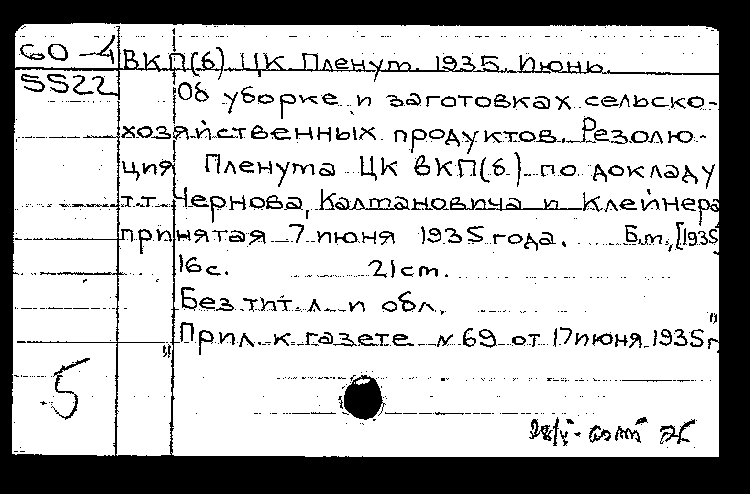 60-4
5522
ВКП(б). ЦК. Пленум. 1935. Июнь.
Об уборке и заготовках сельско-
хозяйственных продуктов. Резолю-
ция Пленума ЦК ВКП(б) по докладу
т.т. Чернова, Калмановича и Клейнера
принятая 7 июня 1935 года. Б.м., [1935]
16с. 21см.
Без тит. л. и обл.
" Прил. к газете № 69 от 17 июня 1935г."
5